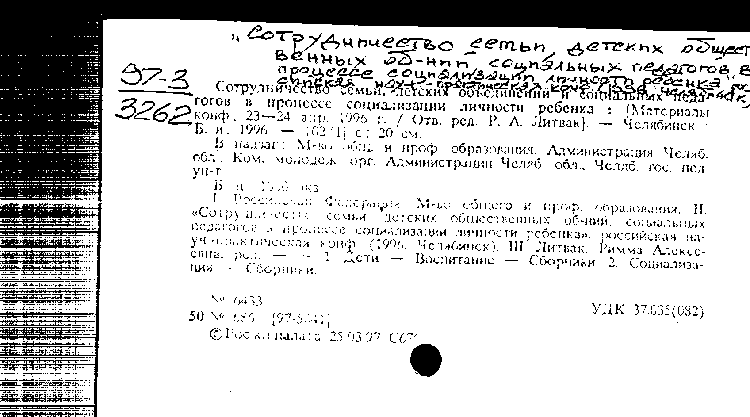 „Сотрудничество семьи, детских общест
венных об-нии, социальных педагогов в
процессе социализации личности ребенка"
97-3
3262
Сотрудничество семьи, детских объединений и социальных педа-
гогов в процессе социализации личности ребенка : [Материалы
конф., 23—24 апр. 1996 г. / Отв. ред. Р. А. Литвак]. — Челябинск :
Б. и., 1996. — 20 см.
В надзаг.: М-во общ. и проф. образования. Администрация Челяб.
обл., Ком. молодеж. орг. Администрации Челяб. обл., Челяб. гос. пед.
ун-т
I. Российская Федерация. М-во общего и проф. образования. II.
«Сотрудничество семьи, детских общественных об-ний, социальных
педагогов в процессе социализации личности ребенка», российская на-
уч.-практическая конф. (1996, Челябинск). III. Литвак, Римма Алексе-
евна, ред. — — 1. Дети — Воспитание — Сборники. 2. Социализа-
ция — Сборники.
№ 6433
УДК 37.035(082)
50 №
© Кн. палата 25.03.97